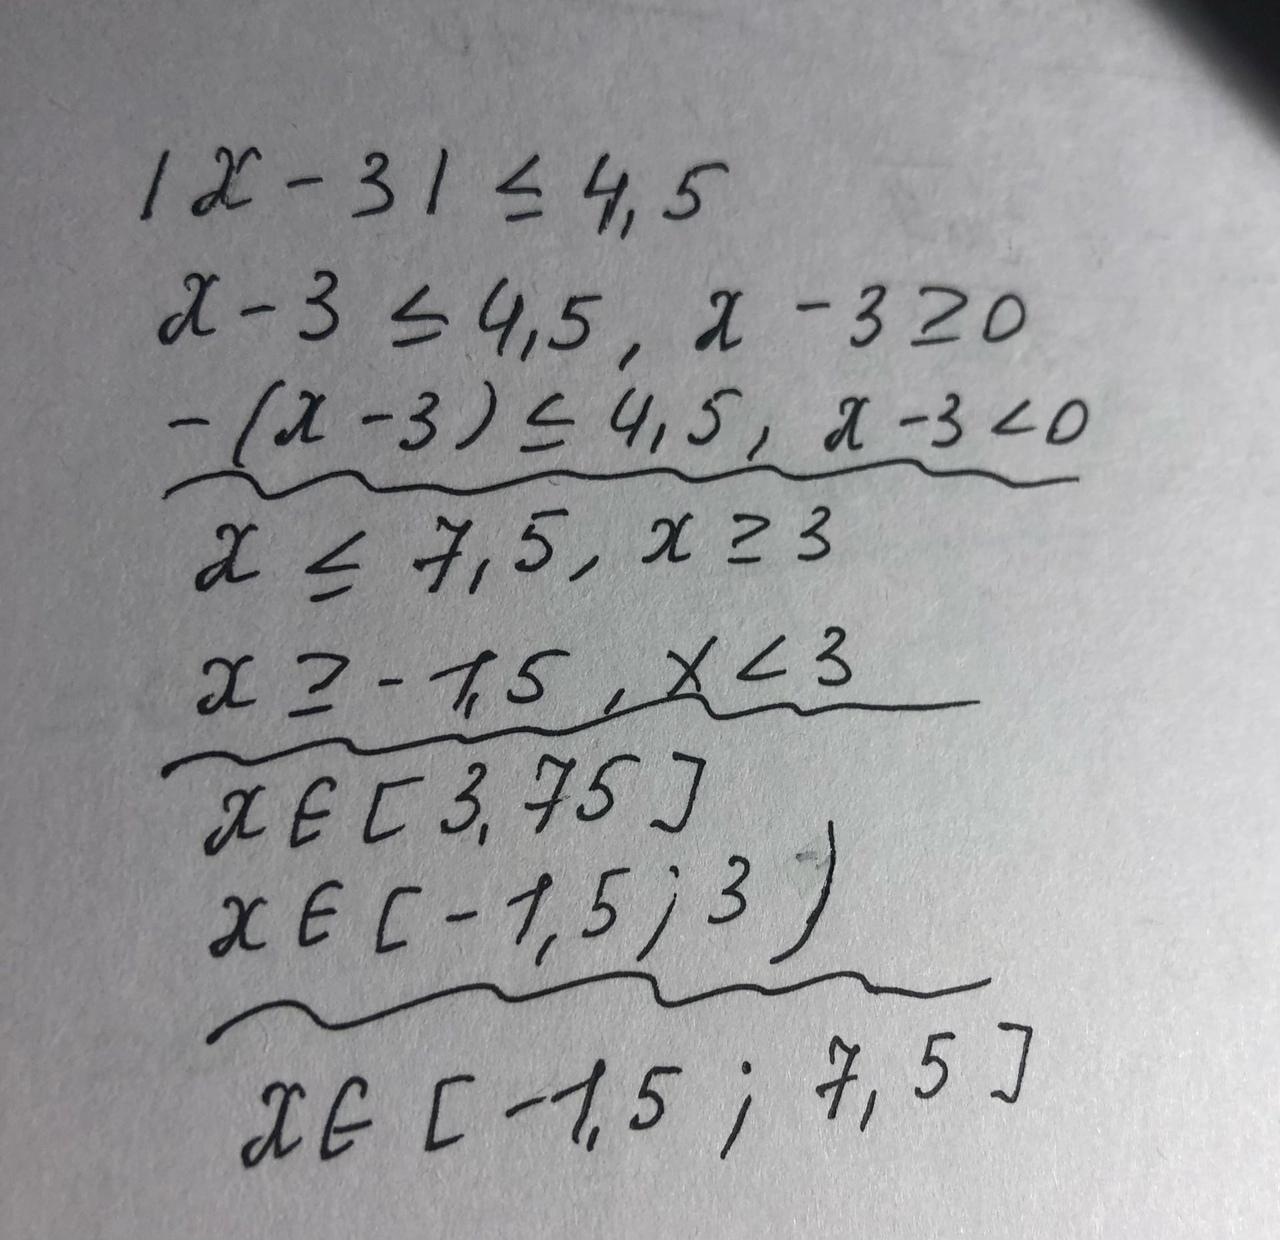 |x - 3| ≤ 4,5
x - 3 ≤ 4,5, x - 3 ≥ 0
-(x - 3) ≤ 4,5, x - 3 < 0
x ≤ 7,5, x ≥ 3
x ≥ -1,5, x < 3
x ∈ [3,75]
x ∈ [-1,5; 3)
x ∈ [-1,5; 7,5]